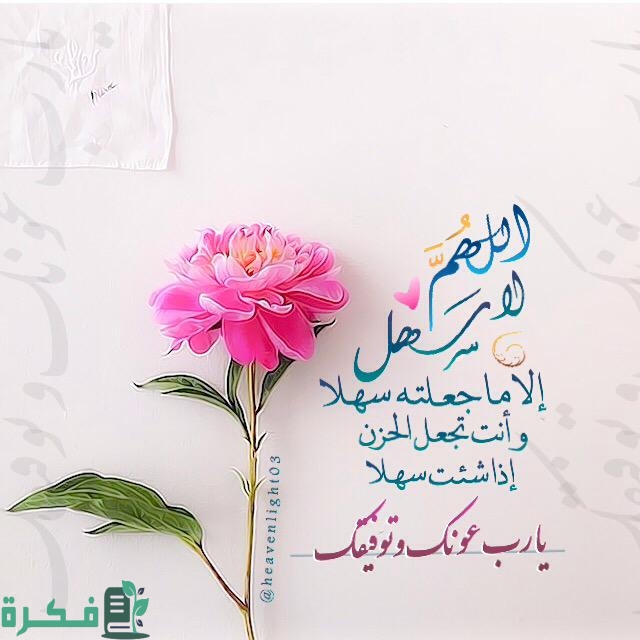 اللهُمَّ
لا سهل
إلا ما جعلته سهلا
وأنت تجعل الحزن
إذا شئت سهلا
يارب عونك وتوفيقك
@heavenlight03
فكرة